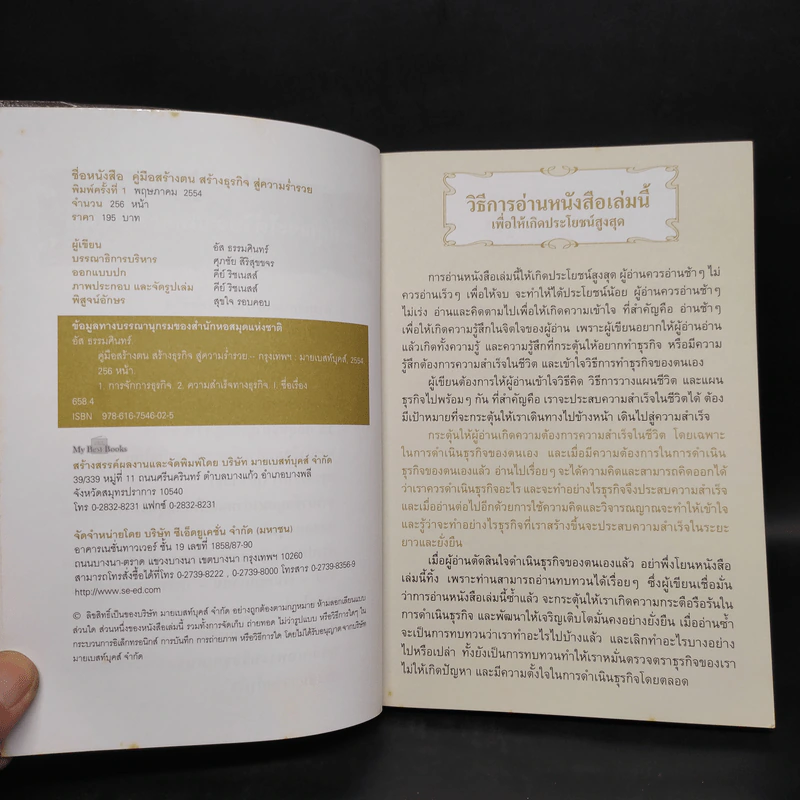 ชื่อหนังสือ คู่มือสร้างตน สร้างธุรกิจ สู่ความร่ำรวย
พิมพ์ครั้งที่ 1 พฤษภาคม 2554
จำนวน 256 หน้า
ราคา 195 บาท
ผู้เขียน อัส ธรรมศินทร์
บรรณาธิการบริหาร ศุภชัย สิริสุขขจร
ออกแบบปก คีย์ ริชเนสส์
ภาพประกอบ และจัดรูปเล่ม คีย์ ริชเนสส์
พิสูจน์อักษร สุขใจ รอบคอบ
ข้อมูลทางบรรณานุกรมของสำนักหอสมุดแห่งชาติ
อัส ธรรมศินทร์
คู่มือสร้างตน สร้างธุรกิจ สู่ความร่ำรวย.-- กรุงเทพฯ : มายเบสท์บุคส์, 2554
256 หน้า.
1. การจัดการธุรกิจ. 2. ความสำเร็จทางธุรกิจ. I. ชื่อเรื่อง
658.4
ISBN 978-616-7546-02-5
My Best Books
สร้างสรรค์ผลงานและจัดพิมพ์โดย บริษัท มายเบสท์บุคส์ จำกัด
39/339 หมู่ที่ 11 ถนนศรีนครินทร์ ตำบลบางแก้ว อำเภอบางพลี
จังหวัดสมุทรปราการ 10540
โทร 0-2832-8231 แฟกซ์ 0-2832-8231
จัดจำหน่ายโดย บริษัท ซีเอ็ดยูเคชั่น จำกัด (มหาชน)
อาคารเนชั่นทาวเวอร์ ชั้น 19 เลขที่ 1858/87-90
ถนนบางนา-ตราด แขวงบางนา เขตบางนา กรุงเทพฯ 10260
สามารถโทรสั่งซื้อได้ที่โทร 0-2739-8222 , 0-2739-8000 โทรสาร 0-2739-8356-9
http://www.se-ed.com
© ลิขสิทธิ์เป็นของบริษัท มายเบสท์บุคส์ จำกัด อย่างถูกต้องตามกฎหมาย ห้ามลอกเลียนแบบ
ส่วนใด ส่วนหนึ่งของหนังสือเล่มนี้ รวมทั้งการจัดเก็บ ถ่ายทอด ไม่ว่ารูปแบบ หรือวิธีการใดๆ ใน
กระบวนการอิเล็กทรอนิกส์ การบันทึก การถ่ายภาพ หรือวิธีการใด โดยไม่ได้รับอนุญาตจากบริษัท
มายเบสท์บุคส์ จำกัด
วิธีการอ่านหนังสือเล่มนี้
เพื่อให้เกิดประโยชน์สูงสุด
การอ่านหนังสือเล่มนี้ให้เกิดประโยชน์สูงสุด ผู้อ่านควรอ่านช้าๆ ไม่
ควรอ่านเร็วๆ เพื่อให้จบ จะทำให้ได้ประโยชน์น้อย ผู้อ่านควรอ่านช้าๆ
ไม่เร่ง อ่านและคิดตามไปเพื่อให้เกิดความเข้าใจ ที่สำคัญคือ อ่านช้าๆ
เพื่อให้เกิดความรู้สึกในจิตใจของผู้อ่าน เพราะผู้เขียนอยากให้ผู้อ่านอ่าน
แล้วเกิดทั้งความรู้ และความรู้สึกที่กระตุ้นให้อยากทำธุรกิจ หรือมีความ
รู้สึกต้องการความสำเร็จในชีวิต และเข้าใจวิธีการทำธุรกิจของตนเอง
ผู้เขียนต้องการให้ผู้อ่านเข้าใจวิธีคิด วิธีการวางแผนชีวิต และแผน
ธุรกิจไปพร้อมๆ กัน ที่สำคัญคือ เราจะประสบความสำเร็จในชีวิตได้ ต้อง
มีเป้าหมายที่จะกระตุ้นให้เราเดินทางไปข้างหน้า เดินไปสู่ความสำเร็จ
กระตุ้นให้ผู้อ่านเกิดความต้องการความสำเร็จในชีวิต โดยเฉพาะ
ในการดำเนินธุรกิจของตนเอง และเมื่อมีความต้องการในการดำเนิน
ธุรกิจของตนเองแล้ว อ่านไปเรื่อยๆ จะได้ความคิดและสามารถคิดออกได้
ว่าเราควรดำเนินธุรกิจอะไร และจะทำอย่างไรธุรกิจจึงประสบความสำเร็จ
และเมื่ออ่านต่อไปอีกด้วยการใช้ความคิดและวิจารณญาณจะทำให้เข้าใจ
และรู้ว่าจะทำอย่างไรธุรกิจที่เราสร้างขึ้นจะประสบความสำเร็จในระยะ
ยาวและยั่งยืน
เมื่อผู้อ่านตัดสินใจดำเนินธุรกิจของตนเองแล้ว อย่าพึ่งโยนหนังสือ
เล่มนี้ทิ้ง เพราะท่านสามารถอ่านทบทวนได้เรื่อยๆ ซึ่งผู้เขียนเชื่อมั่น
ว่าการอ่านหนังสือเล่มนี้ซ้ำแล้ว จะกระตุ้นให้เราเกิดความกระตือรือร้นใน
การดำเนินธุรกิจ และพัฒนาให้เจริญเติบโตมั่นคงอย่างยั่งยืน เมื่ออ่านซ้ำ
จะเป็นการทบทวนว่าเราทำอะไรไปบ้างแล้ว และเลิกทำอะไรบางอย่าง
ไปหรือเปล่า ทั้งยังเป็นการทบทวนทำให้เราหมั่นตรวจตราธุรกิจของเรา
ไม่ให้เกิดปัญหา และมีความตั้งใจในการดำเนินธุรกิจโดยตลอด